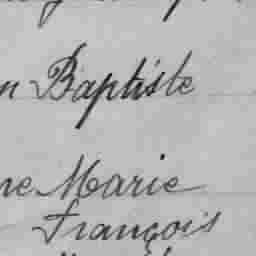 n Baptiste
ne Marie
François